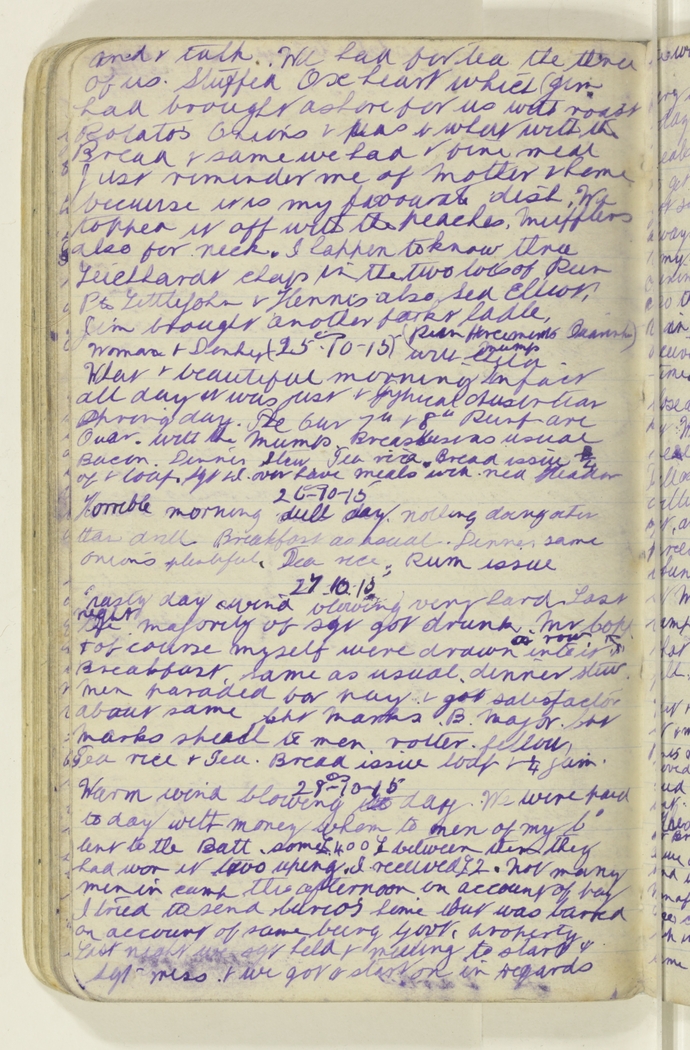 and & talk. We had for tea the three
of us. Stuffed Ox heart which Jim
had brought ashore for us with roast
Potatos Onions & peas & what with the
Bread & same we had & fine meal
Just reminder me of Mother & home
because it is my favourate dish. We
topped it off with the peaches. Mufflers
also for neck. I happen to know three
Leichhardt chaps in the two lots of Rein
Pte Littlejohn & Hennis also Sed Elliot,
Jim brought another Ladle,
Woman & Denby (25-10-15) (Rein Quarint)
with Mumps
What & beautiful morning Infact
all day it was just & typical Australian
Spring day. The 7th & 8th Reinf are
Quar. with the Mumps. Breakfast as usual
Bacon. Dinner Stew Tea rice. Bread issue 3/4
of & loaf. Sgt have meals
26-10-15
Horrible morning dull day. nothing doing other
than drill Breakfast as usual. Dinner same
onions plentiful. Tea rice, Rum issue
27.10.15
Nasty day & wind blowing very hard. Last
night majority of sgt got drunk. Mr
& of course myself were drawn into it
or row
Breakfast same as usual, dinner stew.
Men paraded for pay. & got satisfactor
about same but Marks. B. Major.
Marks men rotter. fellow,
Tea rice & Tea. Bread issue loaf & 1/4 Jam.
28-10-15
Warm wind blowing to day. We were paid
to day with money to men of my
lent to the Batt. some £400 between them they
had won it two uping. I received £2. Not many
men in camp this afternoon on account of pay
I tried to send home but was barred
on account of same being Govt. property
Last night we sgt held & meeting to start &
Sgt mess. & we got & start on in regards